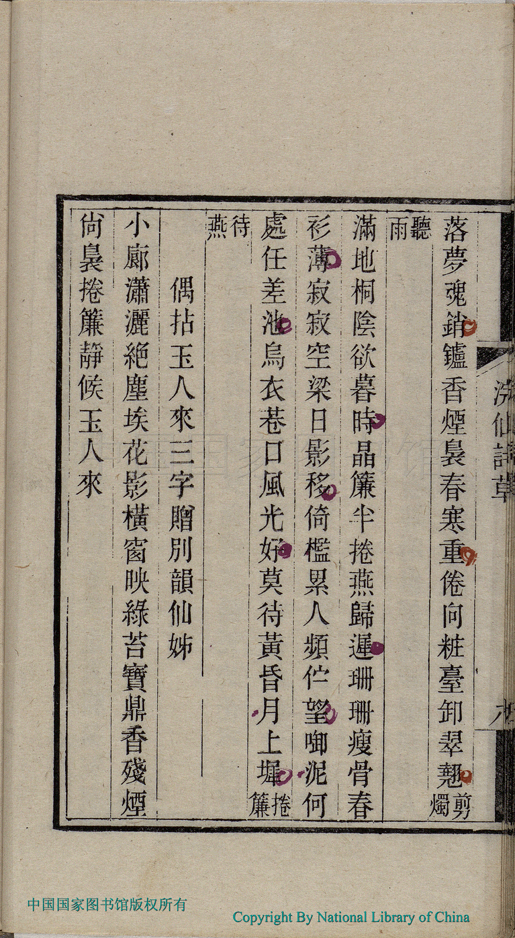 落夢魂銷鑪香煙裊春寒重倦向粧臺卸翠翹剪燭
聽雨
滿地桐陰欲暮時晶簾半捲燕歸遲珊珊瘦骨春
衫薄寂寂空梁日影移倚檻累人頻伫望啣泥何
處任差池烏衣巷口風光好莫待黃昏月上墀捲簾
待燕
偶拈玉人來三字贈別韻仙姊
小廊瀟灑絶塵埃花影橫窗映綠苔寶鼎香殘煙
尙裊捲簾靜候玉人來
仙詩草
中国国家图书馆版权所有
Copyright By National Library of China